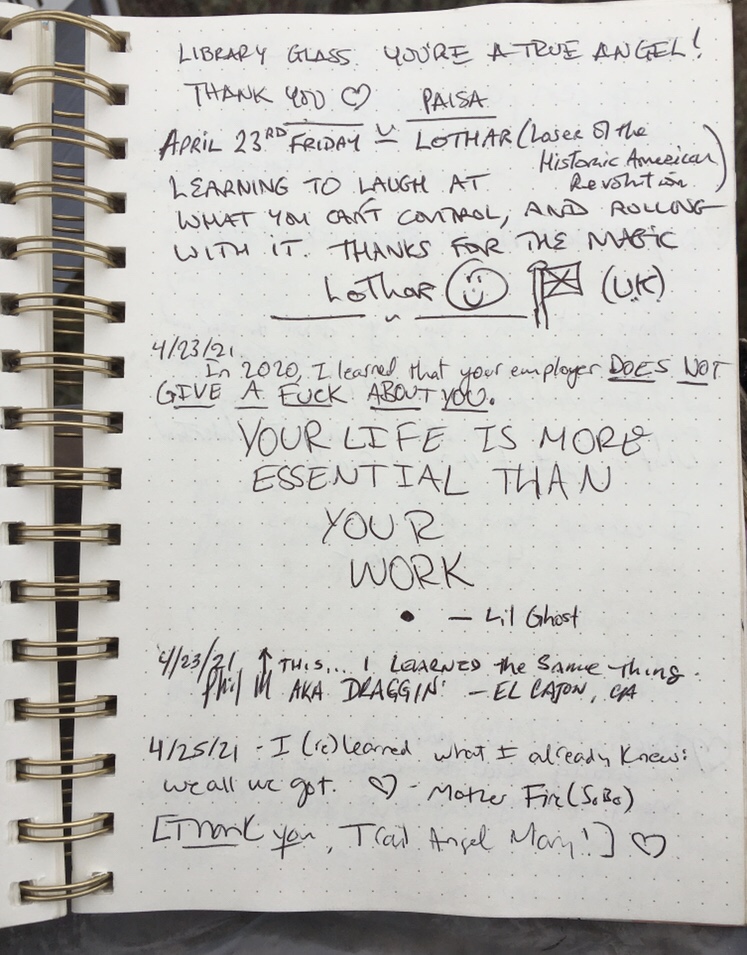 LIBRARY GLASS YOU'RE A TRUE ANGEL!
THANK YOU ♡ PAISA
APRIL 23RD FRIDAY – LOTHAR (Loser of the
Historic American
Revolution)
LEARNING TO LAUGH AT
WHAT YOU CAN'T CONTROL, AND ROLLING
WITH IT. THANKS FOR THE MAGIC
LOTHAR ☺ (UK)
4/23/21
In 2020, I learned that your employer DOES NOT
GIVE A FUCK ABOUT YOU.
YOUR LIFE IS MORE
ESSENTIAL THAN
YOUR
WORK
• — Lil Ghost
4/23/21 ↑ THIS... I LEARNED the Same thing.
Phil M AKA DRAGGIN' – EL CAJON, CA
4/25/21 - I (re)learned what I already knew:
we all we got. ♡ - Mother Fire (SoBo)
[Thank you, Trail Angel Mary!] ♡